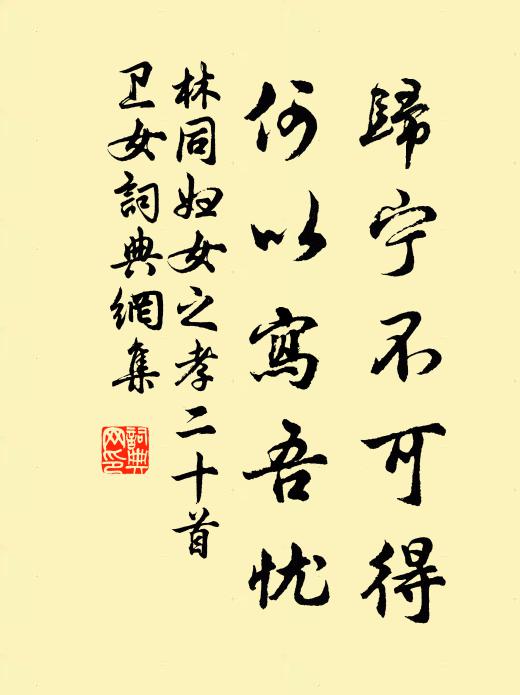 歸宁不可得
何以寫吾忧
林同妇女之孝二十首
卫女詞典網集
詞典网印